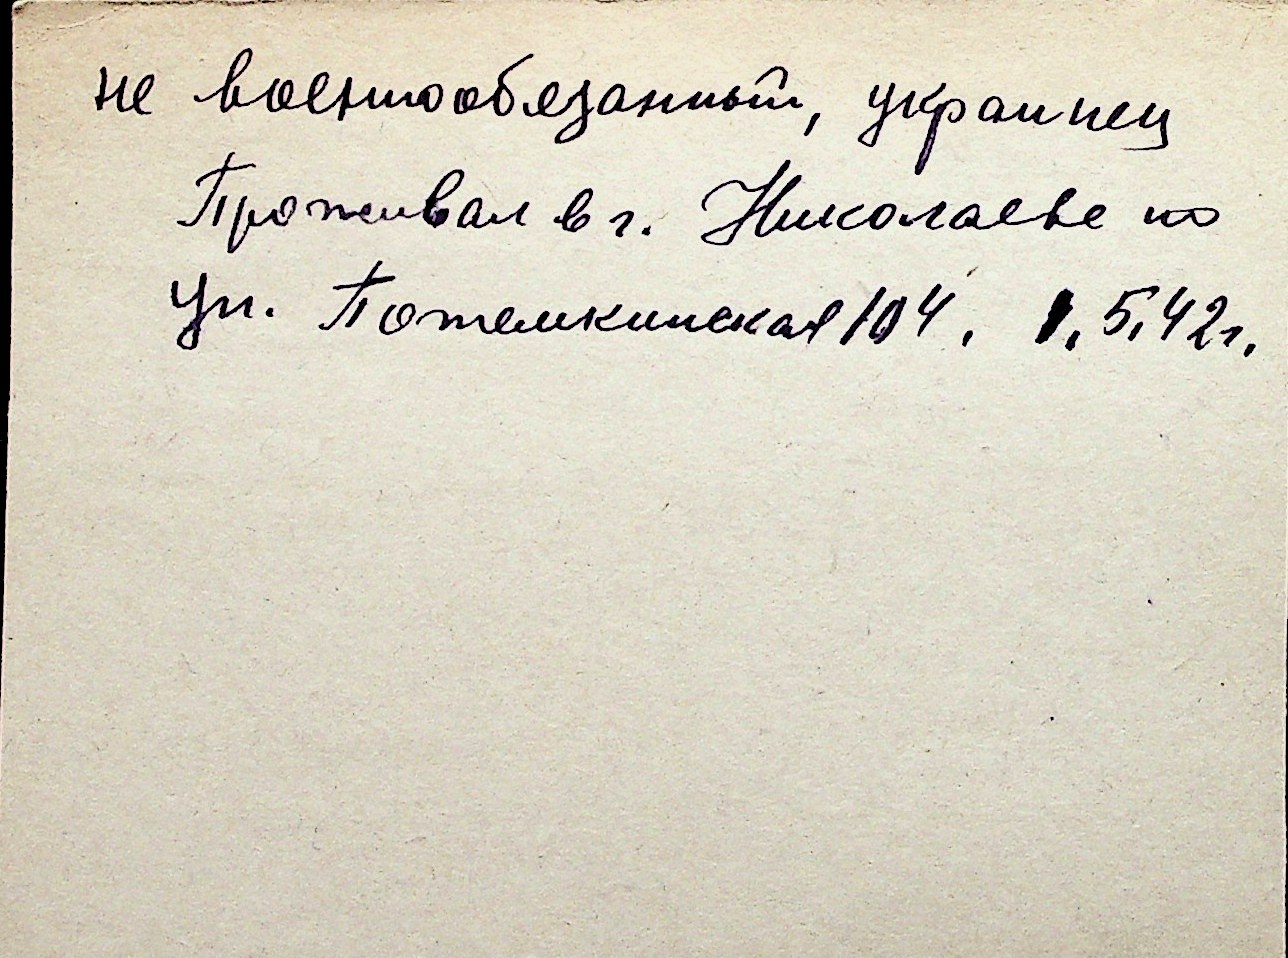 не военнообязанный, украинец
Проживал в г. Николаеве по
ул. Потемкинская 104, 1.5.42г.